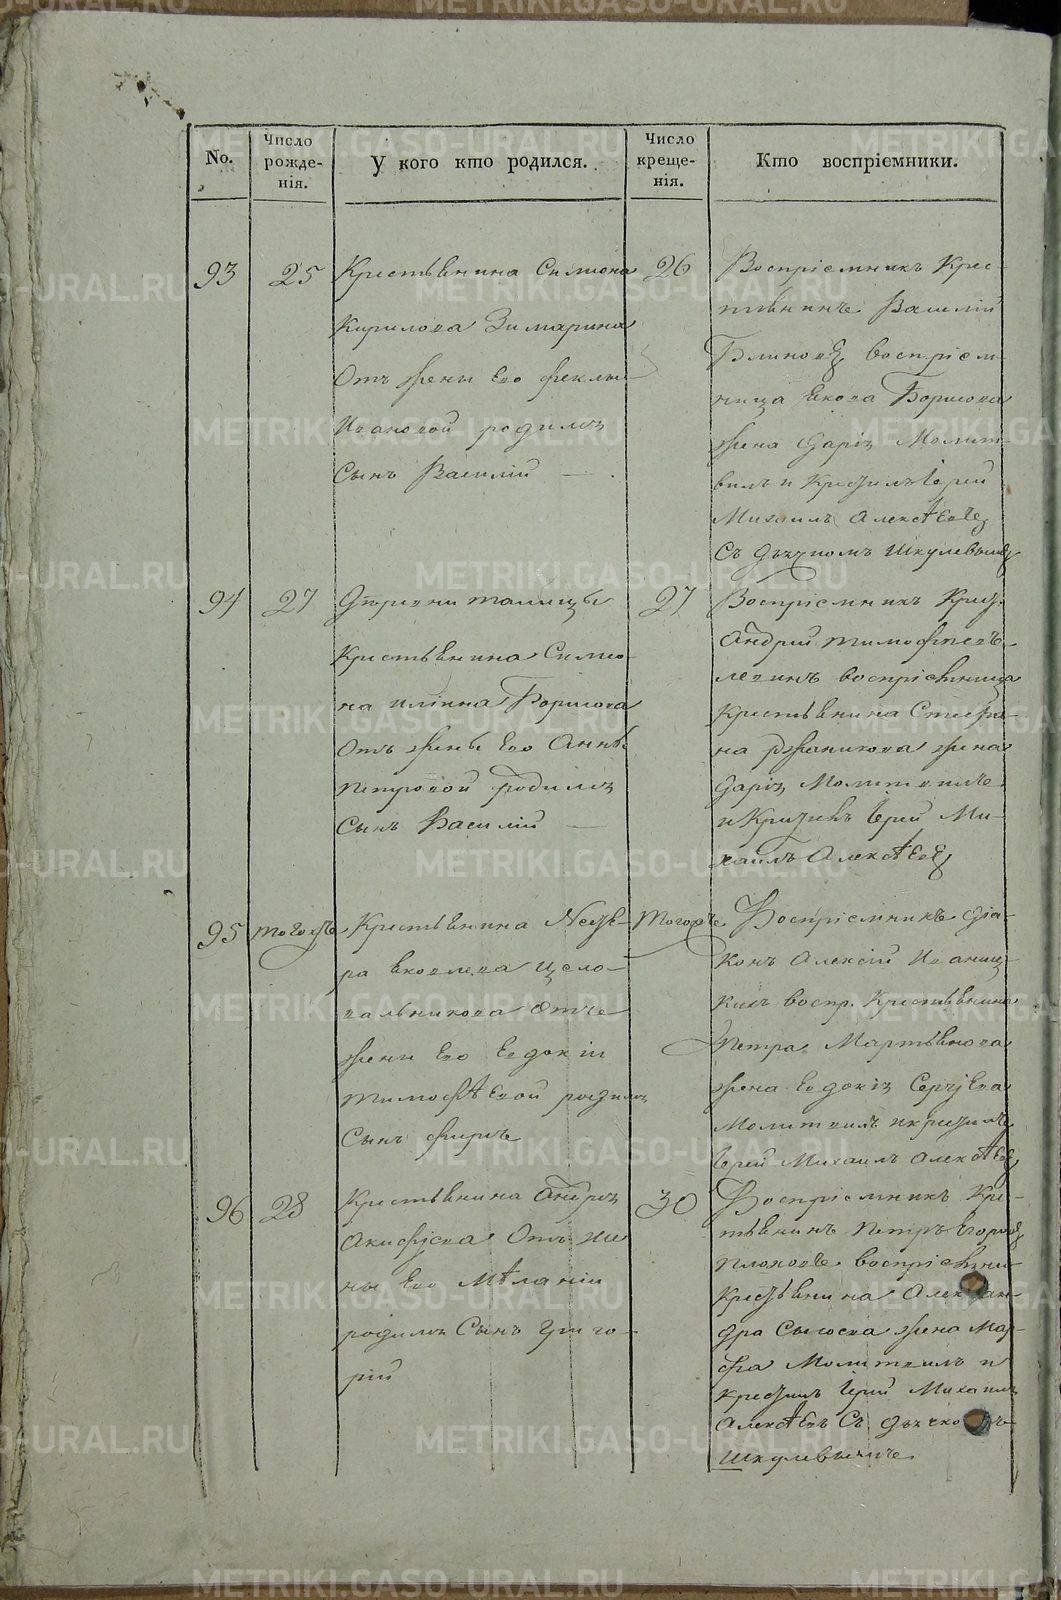 No.
Число рожде-нія.
У кого кто родился.
Число креще-нія.
Кто воспріемники.
93
25
Крестьянина Симиона
Кирилова Зимарина
Отъ жены Его Феклы
Ивановой родился
Сынъ Василій
26
Воспріемникъ Крес-
тьянинъ Василій
Блиновъ воспріем-
ница Якова Борисова
жена Дарія Молит-
вилъ и Крестилъ Іерей
Михаилъ Алексѣевъ
Съ дьячкомъ Шкулевымъ
94
27
Деревни талицы
Крестьянина Симио-
на Борисова
Отъ жены Его Анны
Петровой родился
Сынъ Василій
27
Воспріемникъ Крест.
Андрей Тимофеевъ
воспріемница
Крестьянина Стефа-
на жена
Дарія Молитвилъ
и Крестилъ Іерей Ми-
хаилъ Алексѣевъ
95
тогожъ
Крестьянина
ра Яковлева Цело-
вальникова Отъ
жены Его Евдокіи
Тимофѣевой родился
Сынъ Фирсъ
Тогожъ
Воспріемникъ діа-
конъ Алексій Иваниц-
кихъ воспр. Крестьянина
Петра Мартьянова
жена Евдокія Сергѣева
Молитвилъ и крестилъ
Іерей Михаилъ Алексѣевъ
96
28
Крестьянина Андрея
Отъ же
ны Его Мѣланіи
родился Сынъ Григо-
рій
30
Воспріемникъ Кре-
тьянинъ Петръ Егоровъ
Плоховъ
Крестьянина Алексан-
дра Сысоева жена Мар-
фа Молитвилъ и
Крестилъ Іерей Михаилъ
Алексѣевъ Съ дьячкомъ
Шкулевымъ
METRIKI.GASO-URAL.RU